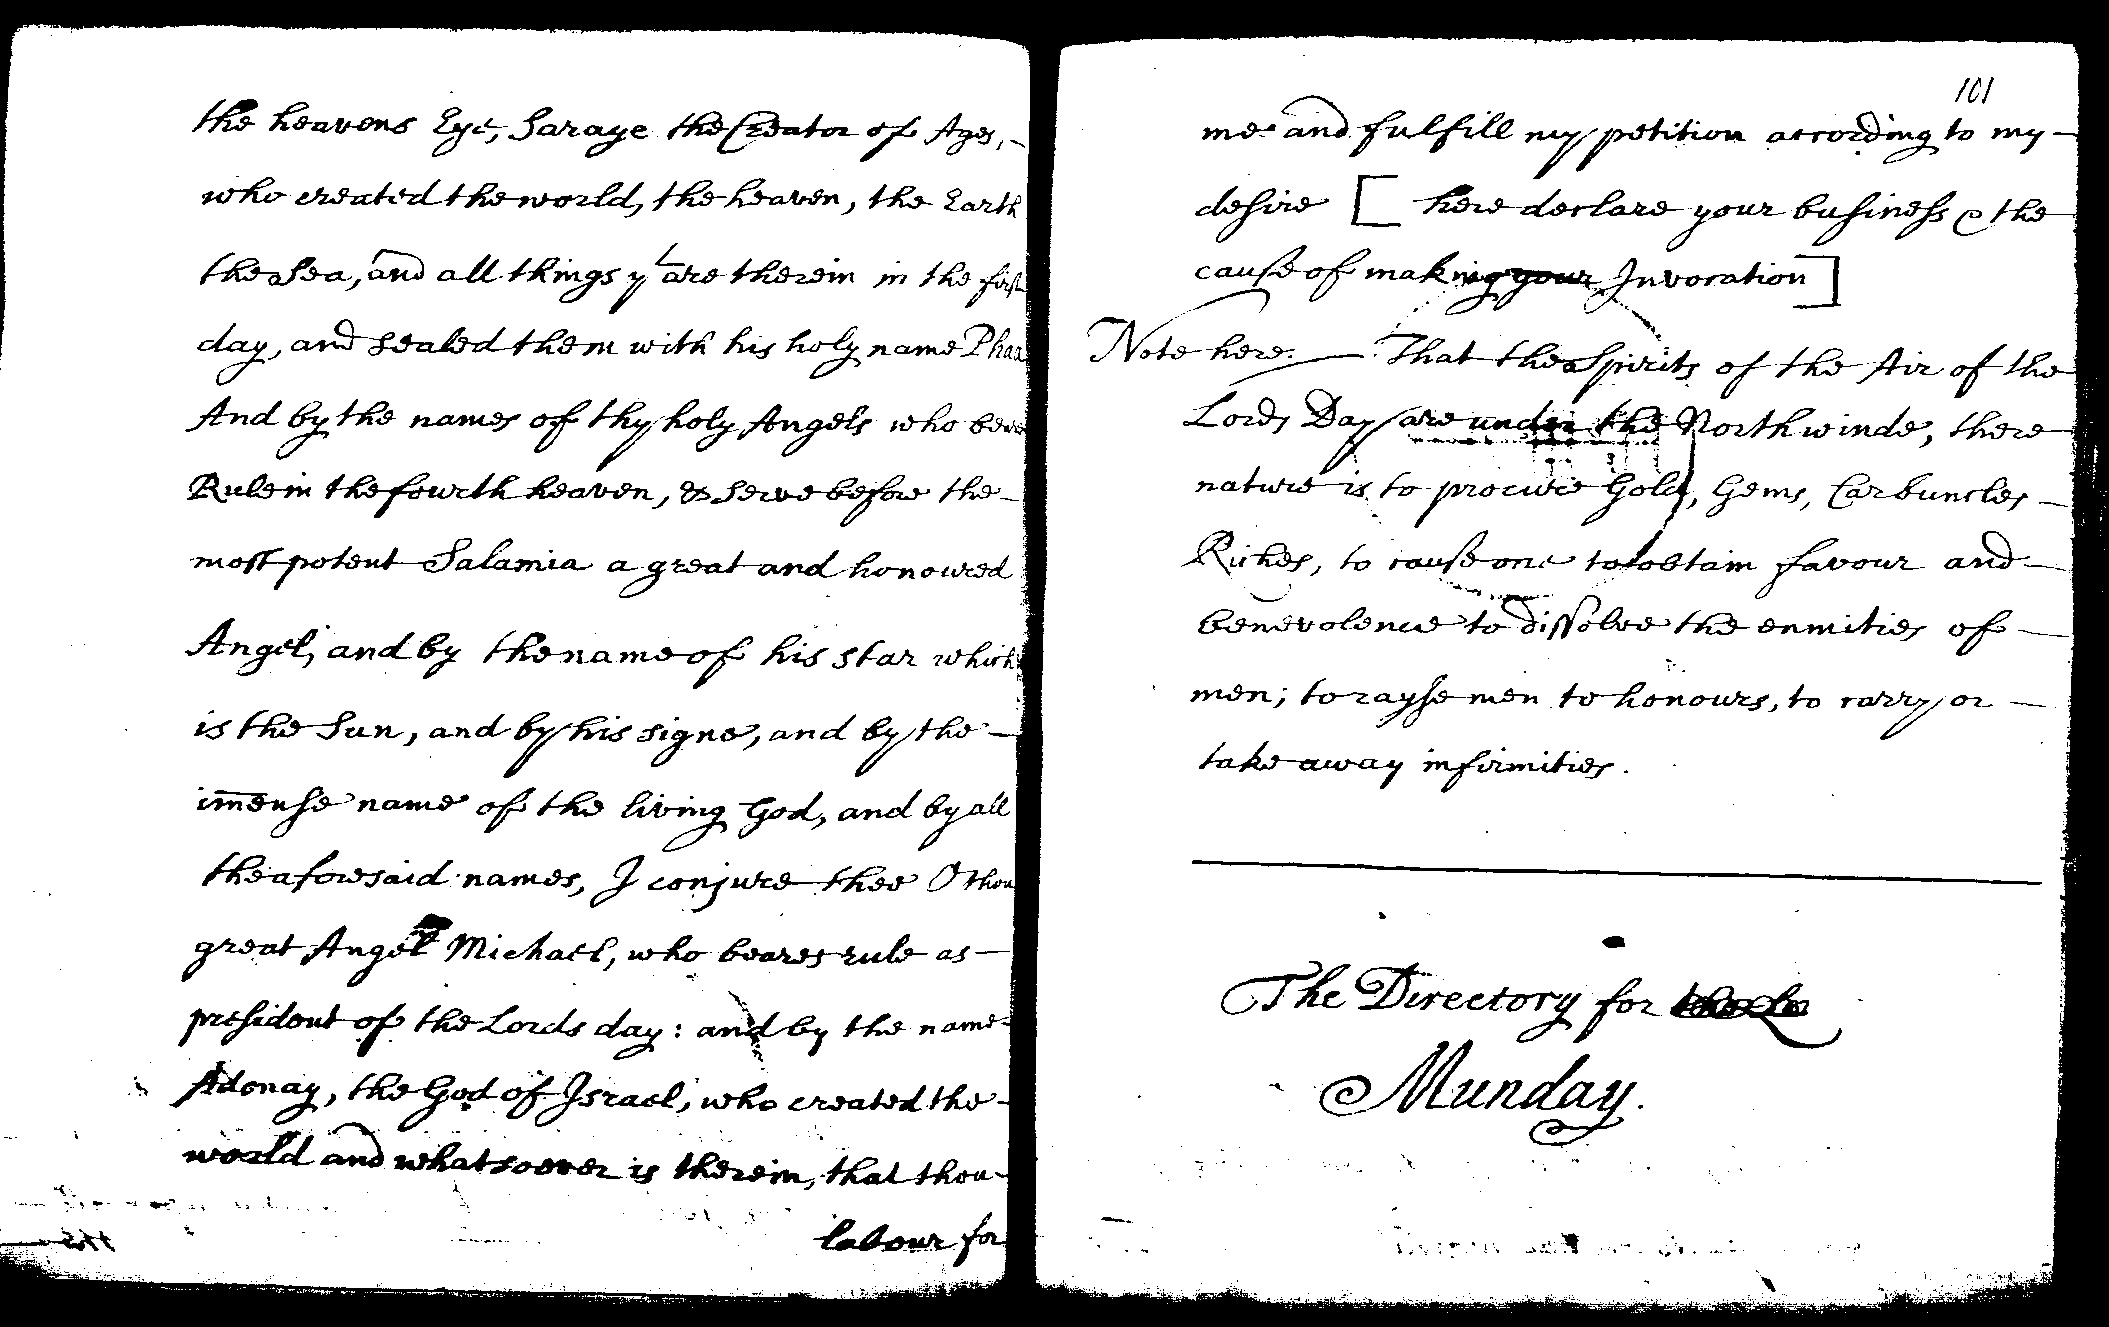 the heavens Eye, Saraye the Creator of Ages, –
who created the world, the heaven, the Earth
the Sea, and all things yt are therein in the first
day, and sealed them with his holy name Phaa
And by the names of thy holy Angels who beare
Rule in the fourth heaven, & serve before the –
most potent Salamia a great and honoured
Angel, and by the name of his star which
is the Sun, and by his signe, and by the –
im̄ense name of the living God, and by all
the aforesaid names, I conjure thee O thou
great Angel Michael, who beares rule as –
president of the Lords day: and by the name
Adonay, the God of Israel, who created the –
world and whatsoever is therein, that thou
labour for
101
me and fulfill my petition according to my –
desire [ here declare your business & the
cause of making your Invocation ]
Note here. — That the Spirits of the Air of the
Lords Day are under the North winde, there
nature is to procure Gold, Gems, Carbuncles –
Riches, to cause one to obtain favour and –
benevolence to dissolve the enmities of –
men; to rayse men to honours, to carry or –
take away infirmities.
The Directory for
Munday.